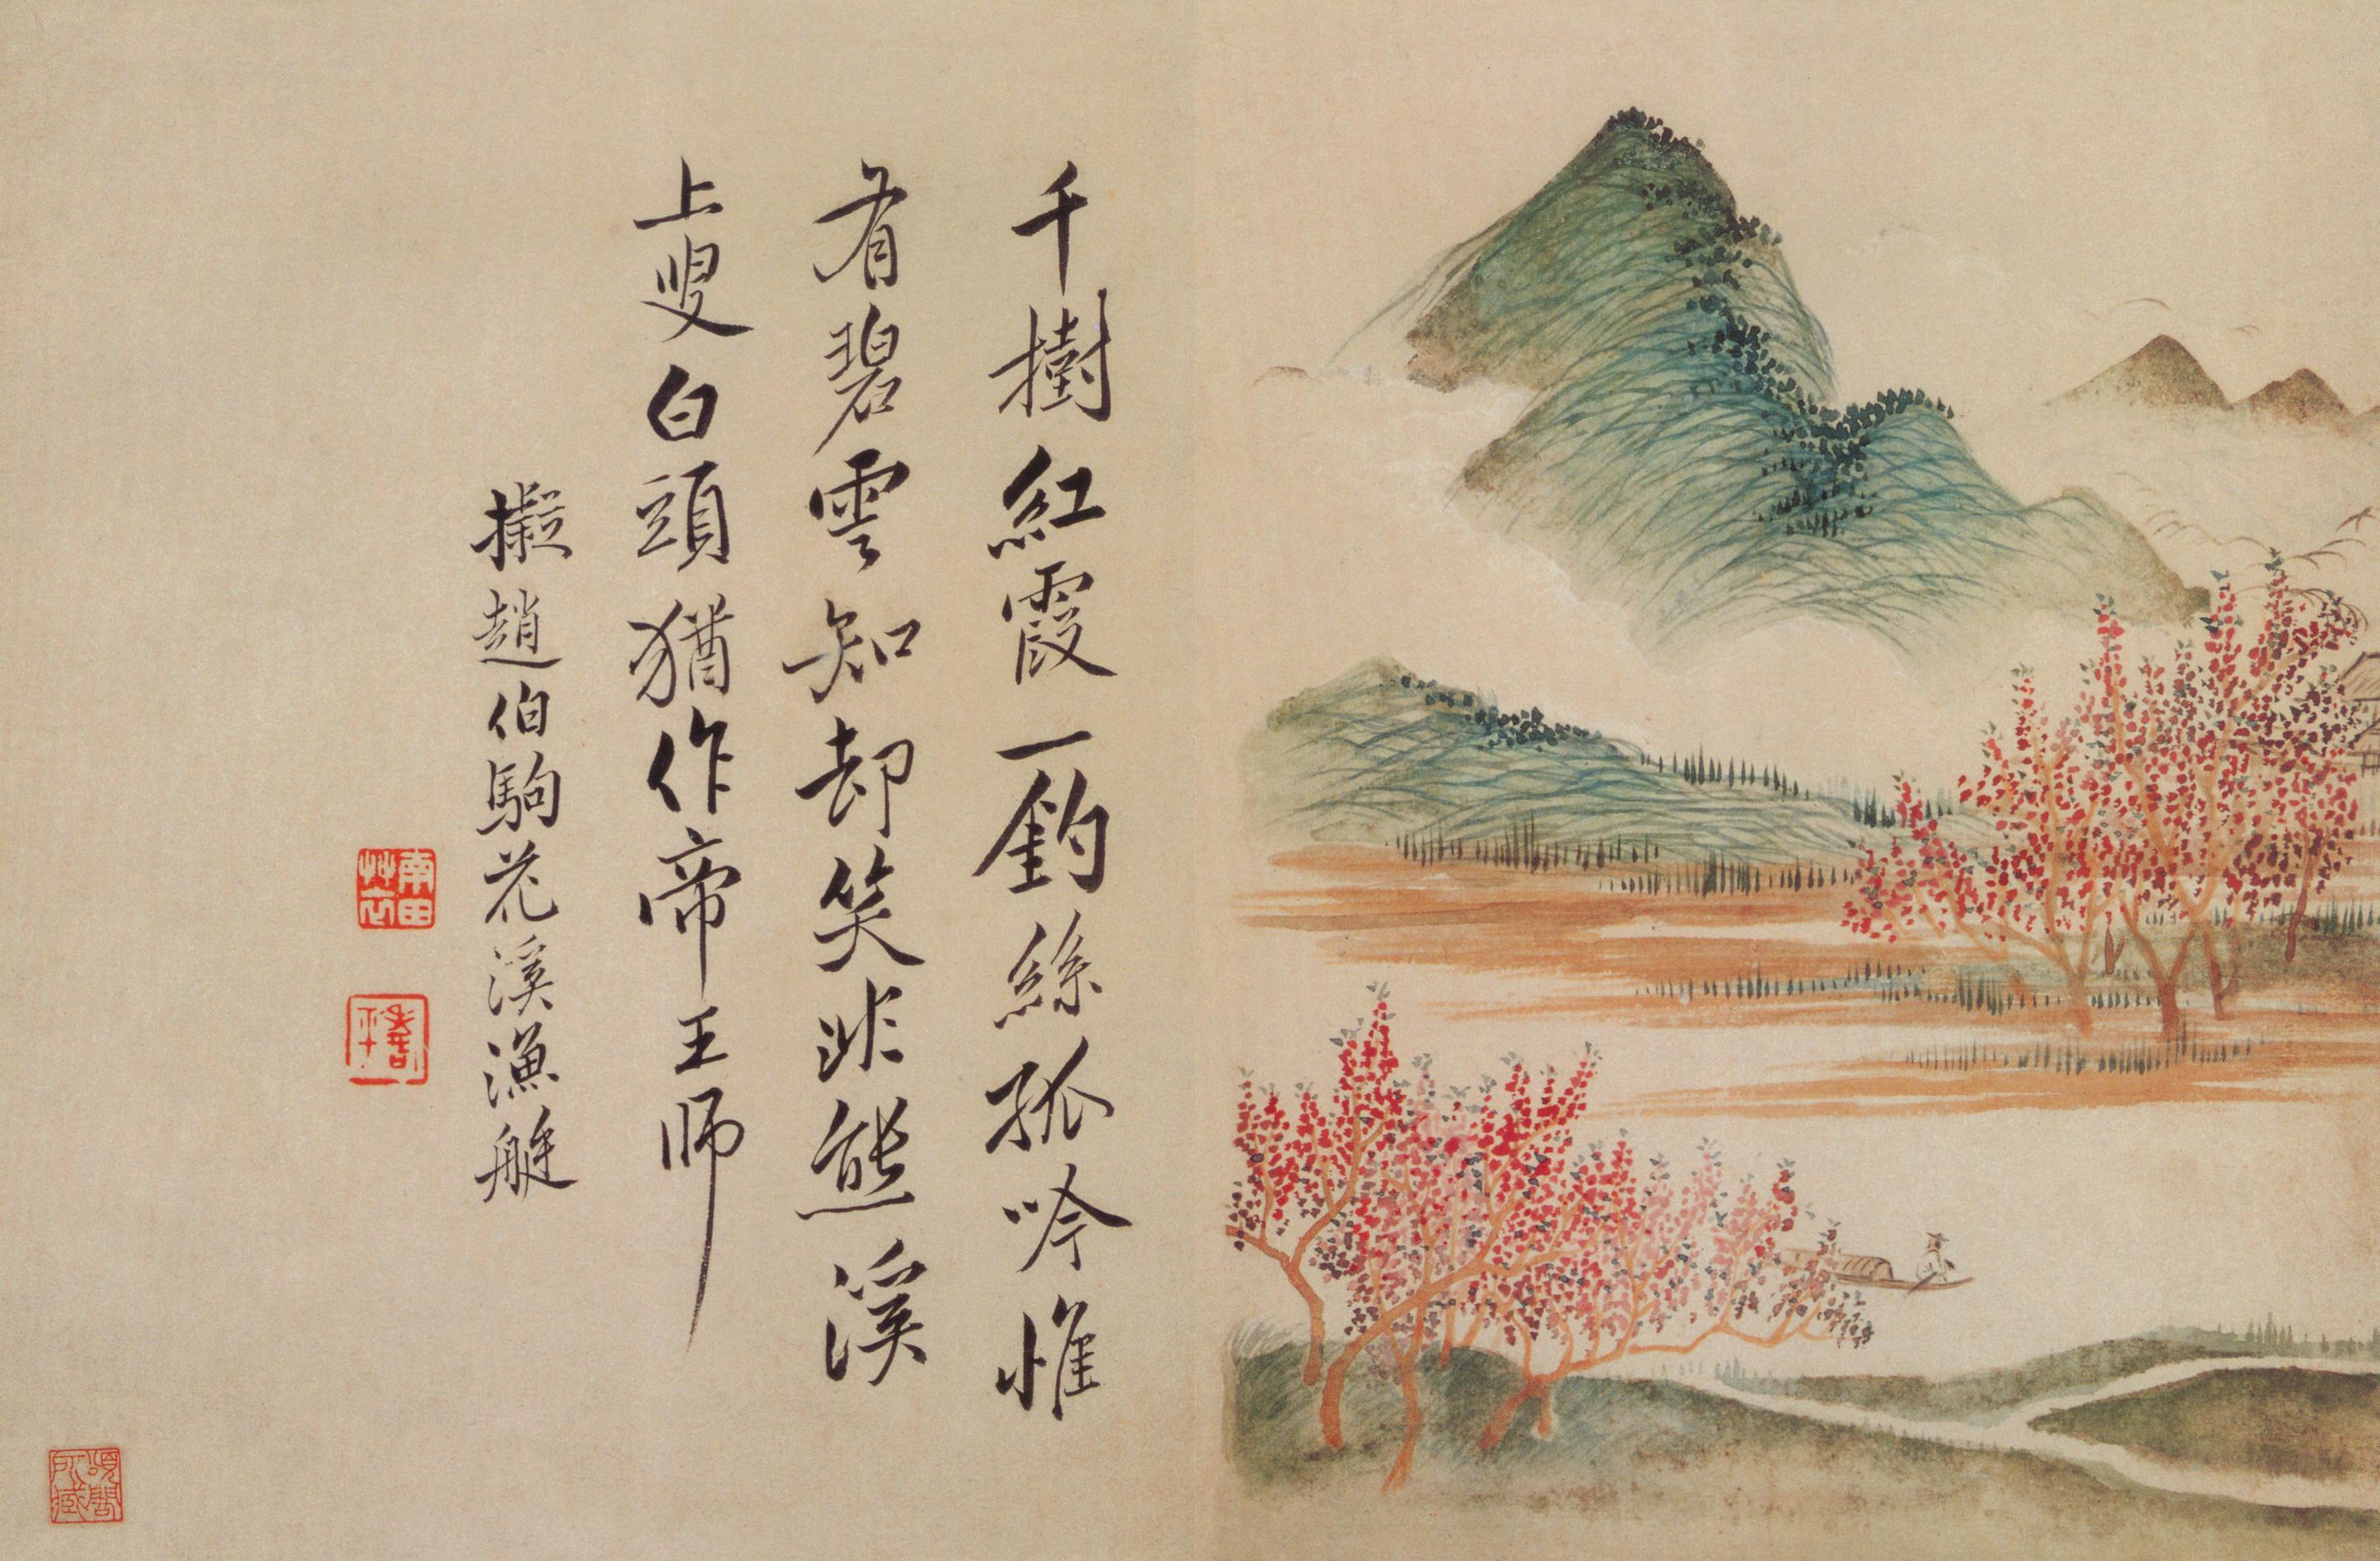 千樹紅霞一釣絲孤吟惟
有碧雲知却笑非熊溪
上叟白頭猶作帝王師
擬趙伯駒花溪漁艇